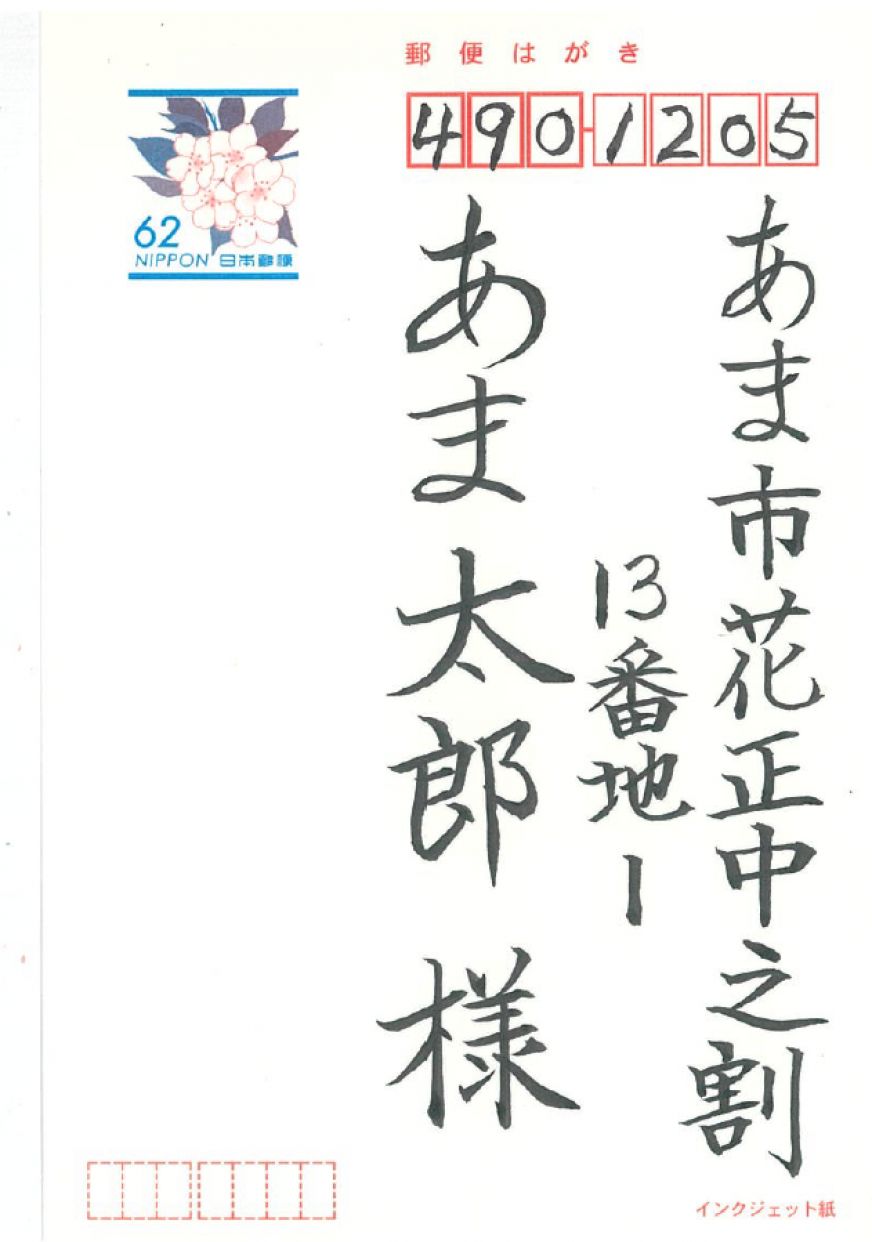 郵便はがき
490-1205
62
NIPPON 日本郵便
あま市花正中之割
13番地1
あま太郎 様
インクジェット紙